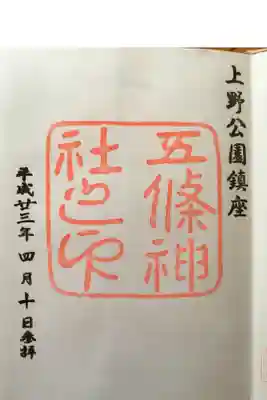 上野公園鎮座
五條神
社之印
平成廿三年四月十日参拝